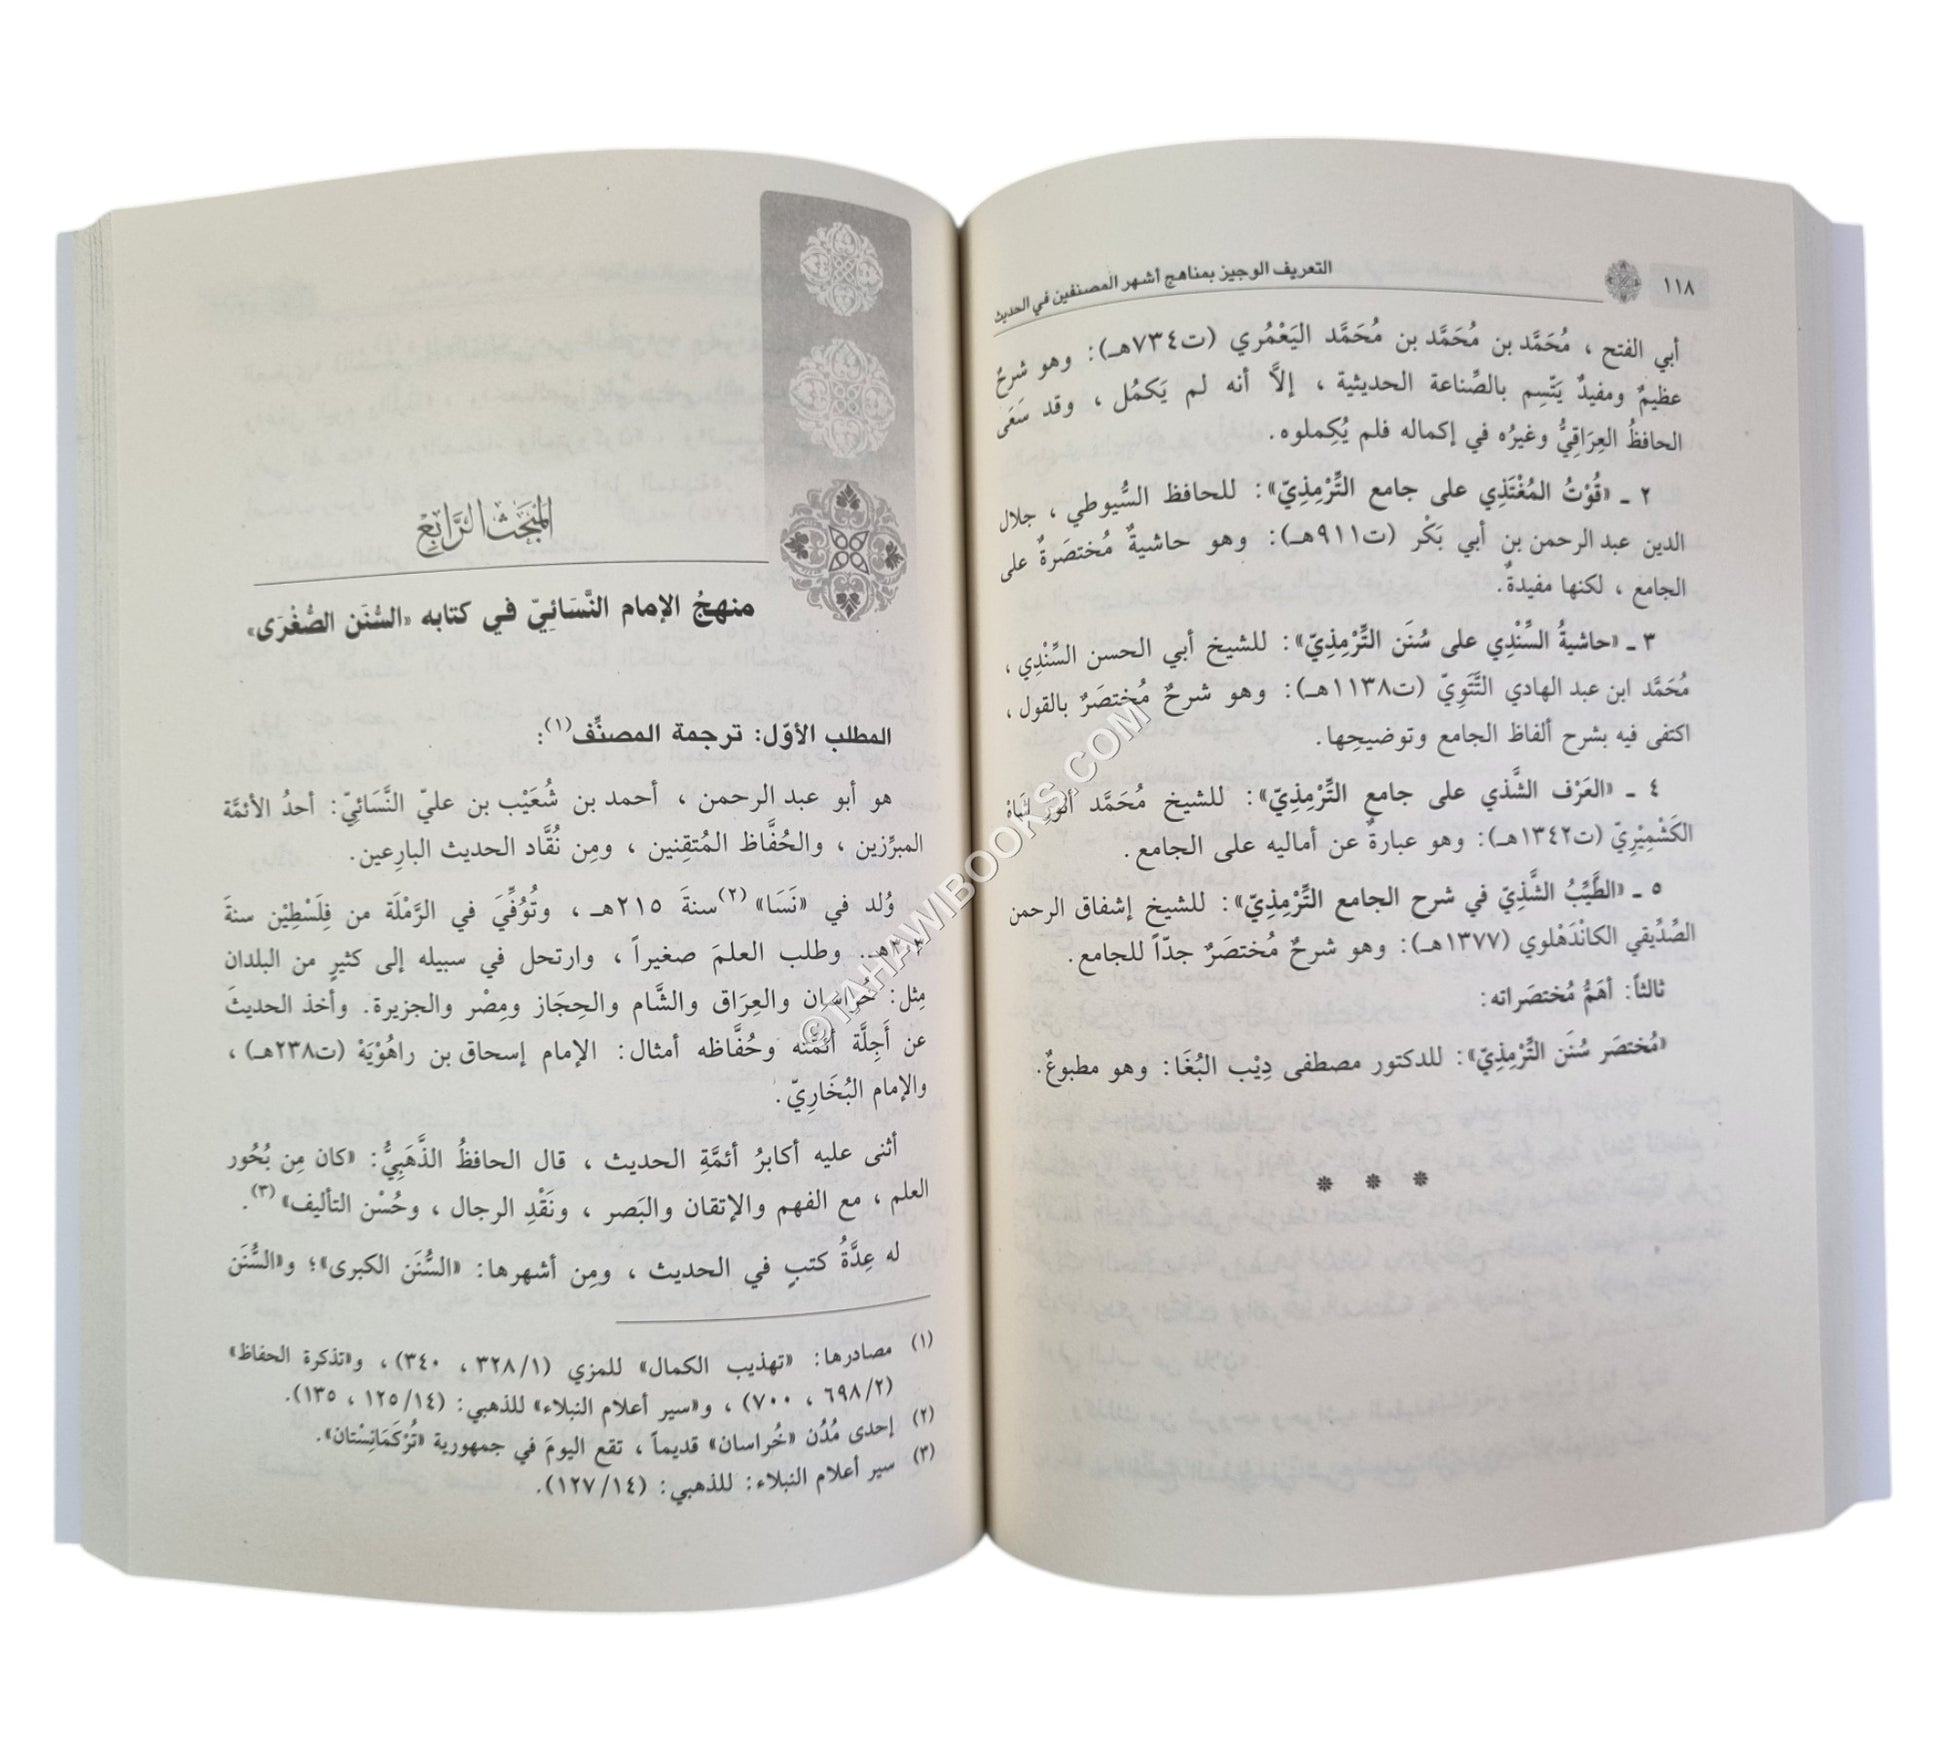 ١١٨
التعريف الوجيز بمناهج أشهر المصنفين في الحديث
أبي الفتح ، مُحَمَّد بن مُحَمَّد بن مُحَمَّد اليَعْمُري (ت٧٣٤هـ): وهو شرحٌ
عظيمٌ ومفيدٌ يَتَّسِم بالصِّناعة الحديثية ، إلاَّ أنه لم يَكمُل ، وقد سَعَى
الحافظُ العِرَاقِيُّ وغيرُه في إكماله فلم يُكِملوه.
٢ ـ «قُوْتُ المُغْتَذِي على جامع التِّرْمِذِيّ»: للحافظ السُّيوطي ، جلال
الدين عبد الرحمن بن أبي بَكْر (ت٩١١هـ): وهو حاشيةٌ مُختصَرةٌ على
الجامع ، لكنها مفيدةٌ.
٣ ـ «حاشيةُ السِّنْدِي على سُنَن التِّرْمِذِيّ»: للشيخ أبي الحسن السِّنْدِي ،
مُحَمَّد ابن عبد الهادي التَّتَوِيّ (ت١١٣٨هـ): وهو شرحٌ مُختصَرٌ بالقول ،
اكتفى فيه بشرح ألفاظ الجامع وتوضيحِها.
٤ ـ «العَرْف الشَّذي على جامع التِّرْمِذِيّ»: للشيخ مُحَمَّد أنور شَاهْ
الكَشْمِيْرِيّ (ت١٣٤٢هـ): وهو عبارةٌ عن أماليه على الجامع.
٥ ـ «الطِّيْبُ الشَّذِيّ في شرح الجامع التِّرْمِذِيّ»: للشيخ إشفاق الرحمن
الصِّدِّيقي الكانْدَهْلوي (١٣٧٧هـ): وهو شرحٌ مُختصَرٌ جدّاً للجامع.
ثالثاً: أهَمُّ مُختصَراته:
«مُختصَر سُنَن التِّرْمِذِيّ»: للدكتور مصطفى دِيْب البُغَا: وهو مطبوعٌ.
* * *
المبحث الرابع
منهجُ الإمام النَّسَائِيّ في كتابه «السُّنَن الصُّغْرَى»
المطلب الأوّل: ترجمة المصنِّف(١):
هو أبو عبد الرحمن ، أحمد بن شُعَيْب بن عليّ النَّسَائِيّ: أحدُ الأئمَّة
المبرِّزين ، والحُفَّاظ المُتقِنين ، ومِن نُقَّاد الحديث البارِعين.
وُلد في «نَسَا»(٢) سنةَ ٢١٥هـ ، وتُوُفِّيَ في الرَّمْلَة من فِلَسْطِيْن سنةَ
٣٠٣هـ. وطلب العلمَ صغيراً ، وارتحل في سبيله إلى كثيرٍ من البلدان
مِثل: خُراسان والعِرَاق والشَّام والحِجَاز ومِصْر والجزيرة. وأخذ الحديثَ
عن أَجِلَّة أئمَّته وحُفَّاظه أمثال: الإمام إسحاق بن راهُوْيَهْ (ت٢٣٨هـ) ،
والإمام البُخَارِيّ.
أثنى عليه أكابرُ أئمَّةِ الحديث ، قال الحافظُ الذَّهَبِيُّ: «كان مِن بُحُور
العلم ، مع الفهم والإتقان والبَصر ، ونَقْدِ الرجال ، وحُسْن التأليف»(٣).
له عِدَّةُ كتبٍ في الحديث ، ومِن أشهرها: «السُّنَن الكبرى»؛ و«السُّنَن
(١) مصادرها: «تهذيب الكمال» للمزي (٣٢٨/١ ، ٣٤٠) ، و«تذكرة الحفاظ»
(٦٩٨/٢ ، ٧٠٠) ، و«سير أعلام النبلاء» للذهبي: (١٢٥/١٤ ، ١٣٥).
(٢) إحدى مُدُن «خُراسان» قديماً ، تقع اليومَ في جمهورية «تُرْكَمَانِسْتان».
(٣) سير أعلام النبلاء: للذهبي: (١٢٧/١٤).
©TAHAWIBOOKS.COM